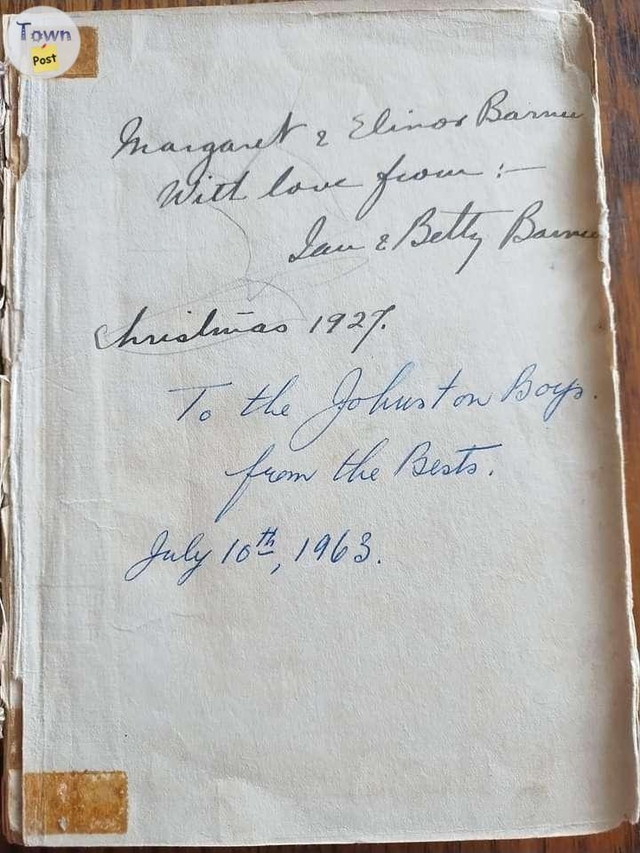 Town
Post
Margaret & Elinor
With love from :-
Ian & Betty
Christmas 1927.
To the Johnston Boys.
from the Bests.
July 10th, 1963.